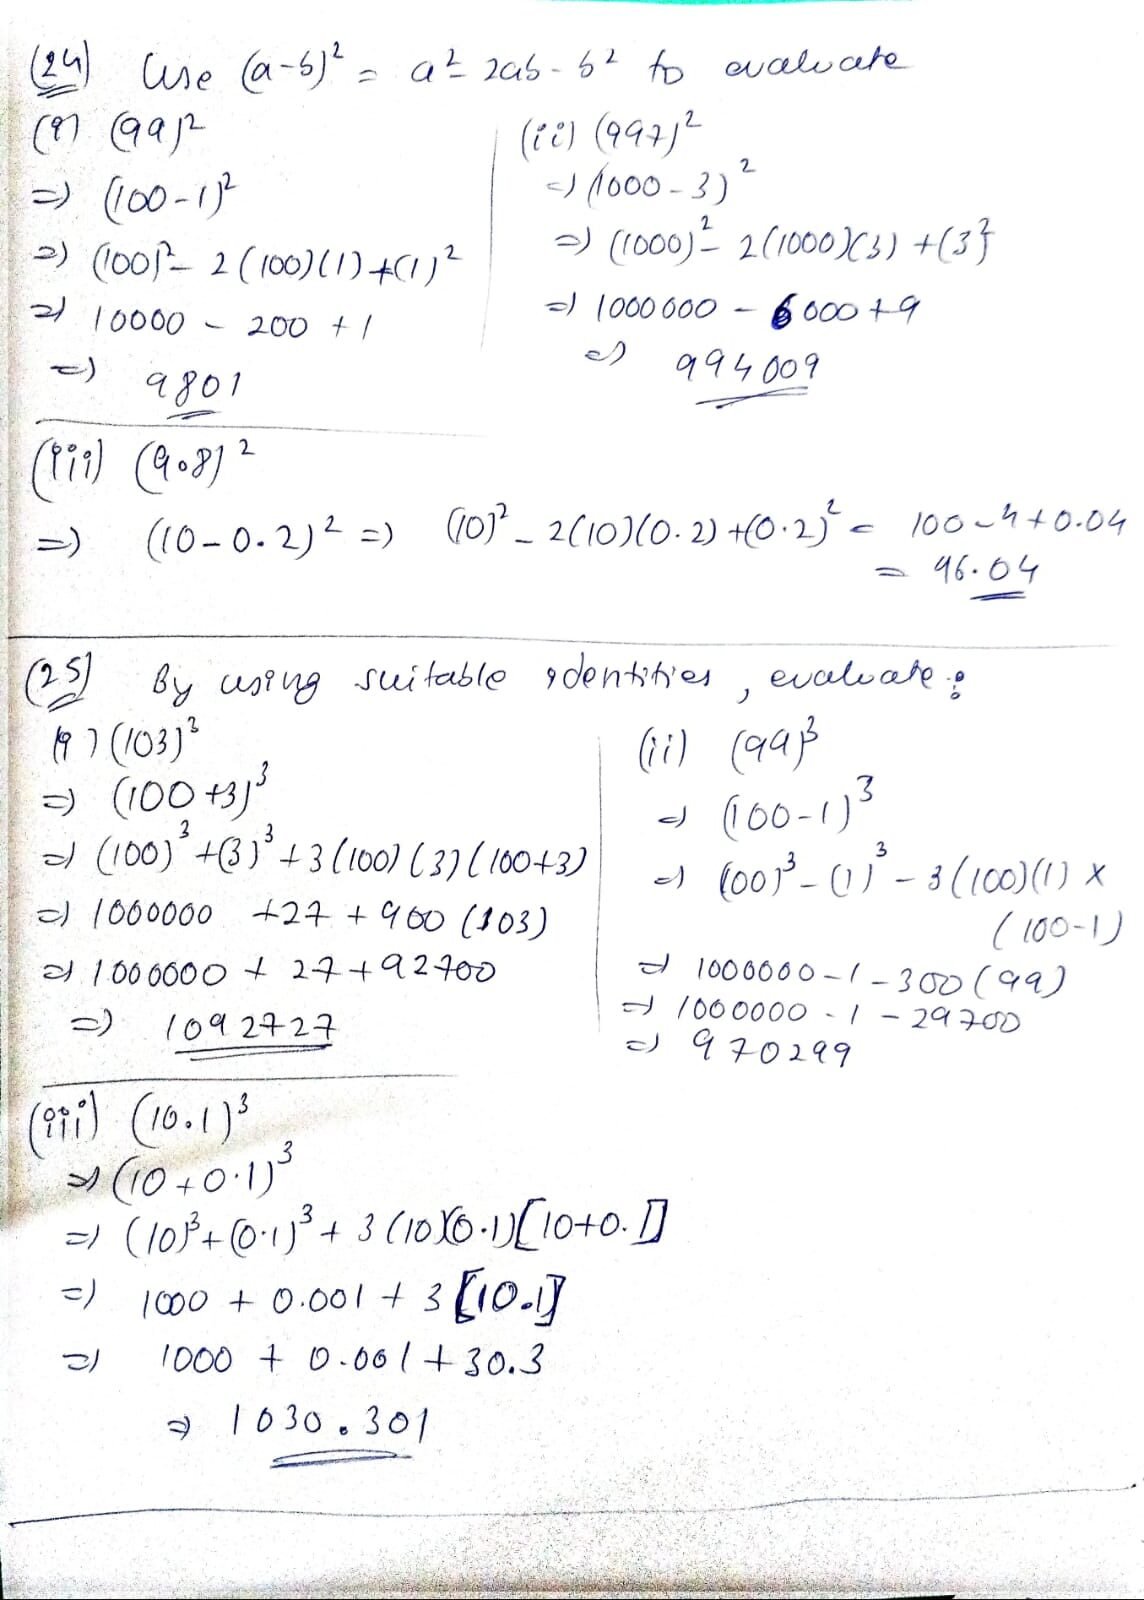 (24) Use (a-b)² = a² - 2ab - b² to evaluate
(i) (99)²
⇒ (100-1)²
⇒ (100)² - 2(100)(1)+(1)²
⇒ 10000 - 200 + 1
⇒ 9801
(ii) (997)²
⇒ (1000-3)²
⇒ (1000)² - 2(1000)(3) + (3)²
⇒ 1000000 - 6000+9
⇒ 994009
(iii) (9.8)²
⇒ (10-0.2)² ⇒ (10)² - 2(10)(0.2)+(0.2)² = 100-4+0.04
= 96.04
(25) By using suitable identities, evaluate:
(i) (103)³
⇒ (100+3)³
⇒ (100)³+(3)³+3(100)(3)(100+3)
⇒ 1000000 +27 + 900 (103)
⇒ 1000000 + 27+92700
⇒ 1092727
(ii) (99)³
⇒ (100-1)³
⇒ (100)³-(1)³ - 3(100)(1) ×
(100-1)
⇒ 1000000-1-300(99)
⇒ 1000000-1-29700
⇒ 970299
(iii) (10.1)³
⇒ (10+0.1)³
⇒ (10)³+(0.1)³ + 3(10)(0.1)[10+0.1]
⇒ 1000 + 0.001 + 3[10.1]
⇒ 1000 + 0.001+30.3
⇒ 1030.301